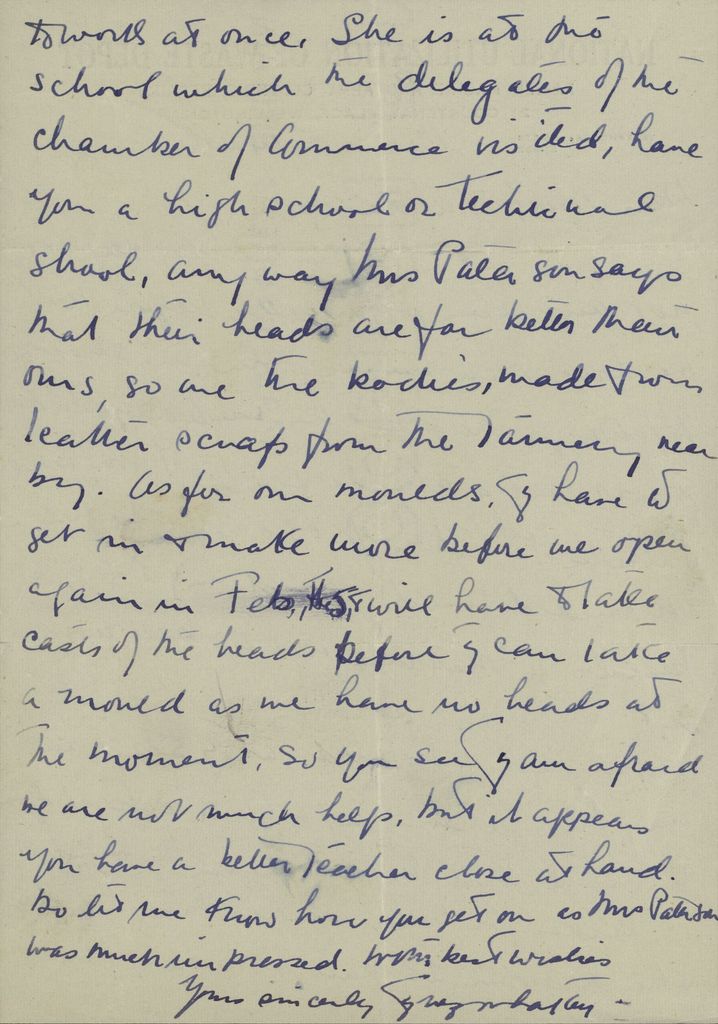 to work at once. She is at the
school which the delegates of the
chamber of Commerce visited, have
you a high school or Technical
school, any way Mrs Paterson says
that their heads are far better than
ours, so are the bodies, made from
leather scraps from the Tannery near
by. As for our moulds, I have to
get in & make more before we open
again in Feb, & will have to take
casts of the heads before I can take
a mould as we have no heads at
the moment. So you see I am afraid
we are not much help, but it appears
you have a better Teacher close at hand.
Do let me know how you get on as Mrs Paterson
was much impressed. With best wishes
Yours sincerely